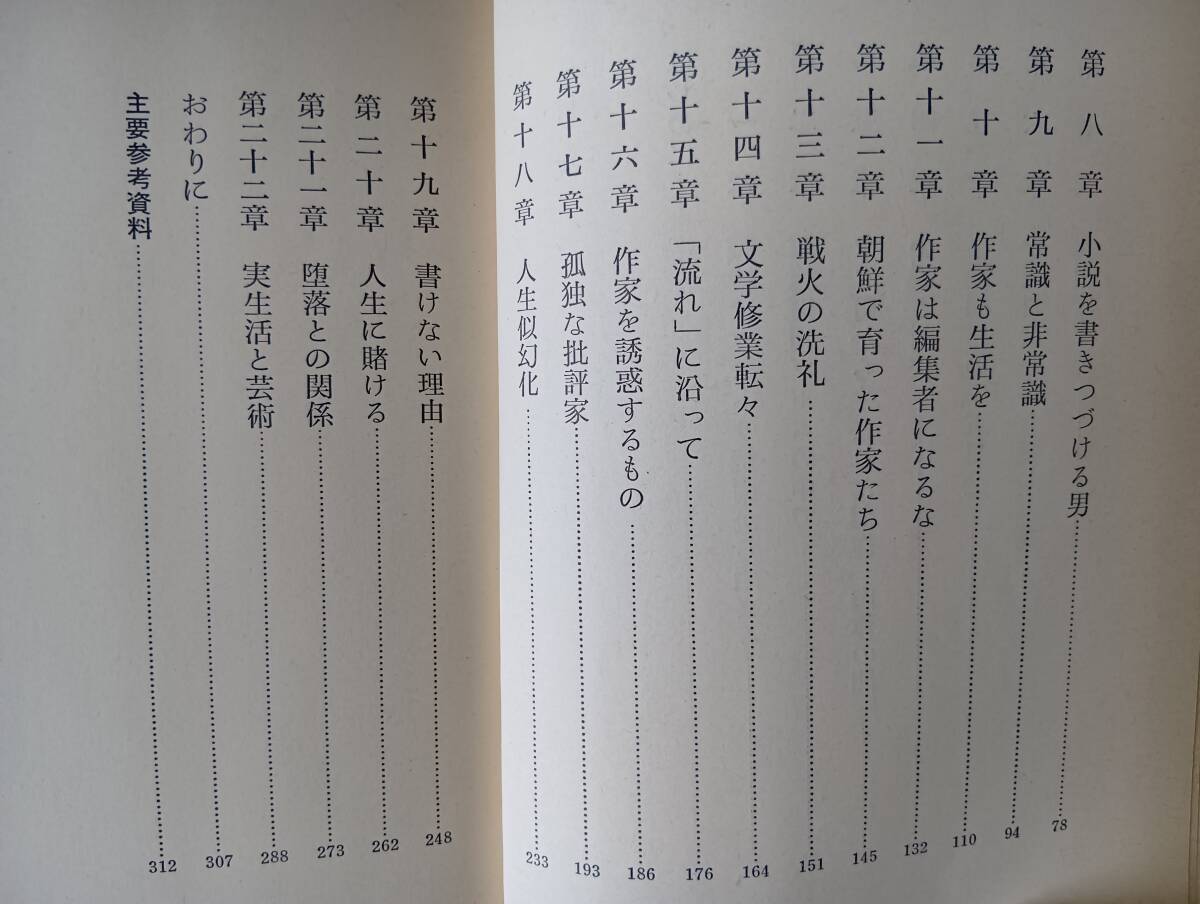 第八章 小説を書きつづける男……78
第九章 常識と非常識……94
第十章 作家も生活を……110
第十一章 作家は編集者になるな……132
第十二章 朝鮮で育った作家たち……145
第十三章 戦火の洗礼……151
第十四章 文学修業転々……164
第十五章 「流れ」に沿って……176
第十六章 作家を誘惑するもの……186
第十七章 孤独な批評家……193
第十八章 人生似幻化……233
第十九章 書けない理由……248
第二十章 人生に賭ける……262
第二十一章 堕落との関係……273
第二十二章 実生活と芸術……288
おわりに……307
主要参考資料……312